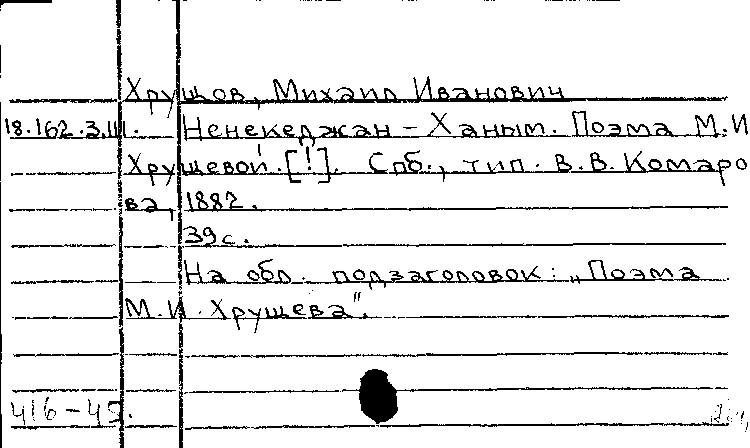 Хрущов, Михаил Иванович
18.162.3.III. Ненекеджан – Ханым. Поэма М.И
Хрущевой.[!]. Спб., тип. В.В. Комаро
ва, 1882.
39с.
На обл. подзаголовок: „Поэма
М.И. Хрущева".
416–45.